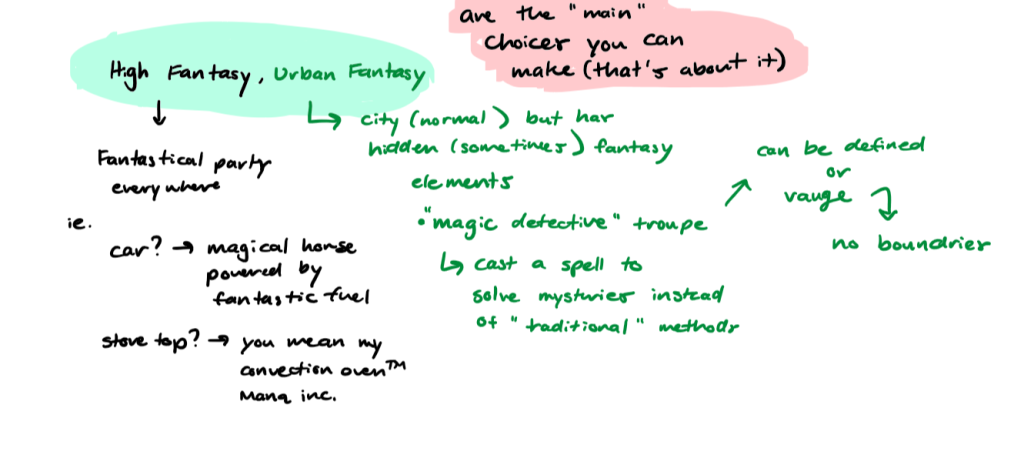 are the "main"
choices you can
make (that's about it)
High Fantasy, Urban Fantasy
↓
Fantastical party
everywhere
ie.
car? → magical horse
powered by
fantastic fuel
stove top? → you mean my
convection oven™
Mana inc.
↳ city (normal) but has
hidden (sometimes) fantasy
elements
• "magic detective" troupe
↳ cast a spell to
solve mysteries instead
of "traditional" methods
↗ can be defined
or
vauge ↴
no boundries